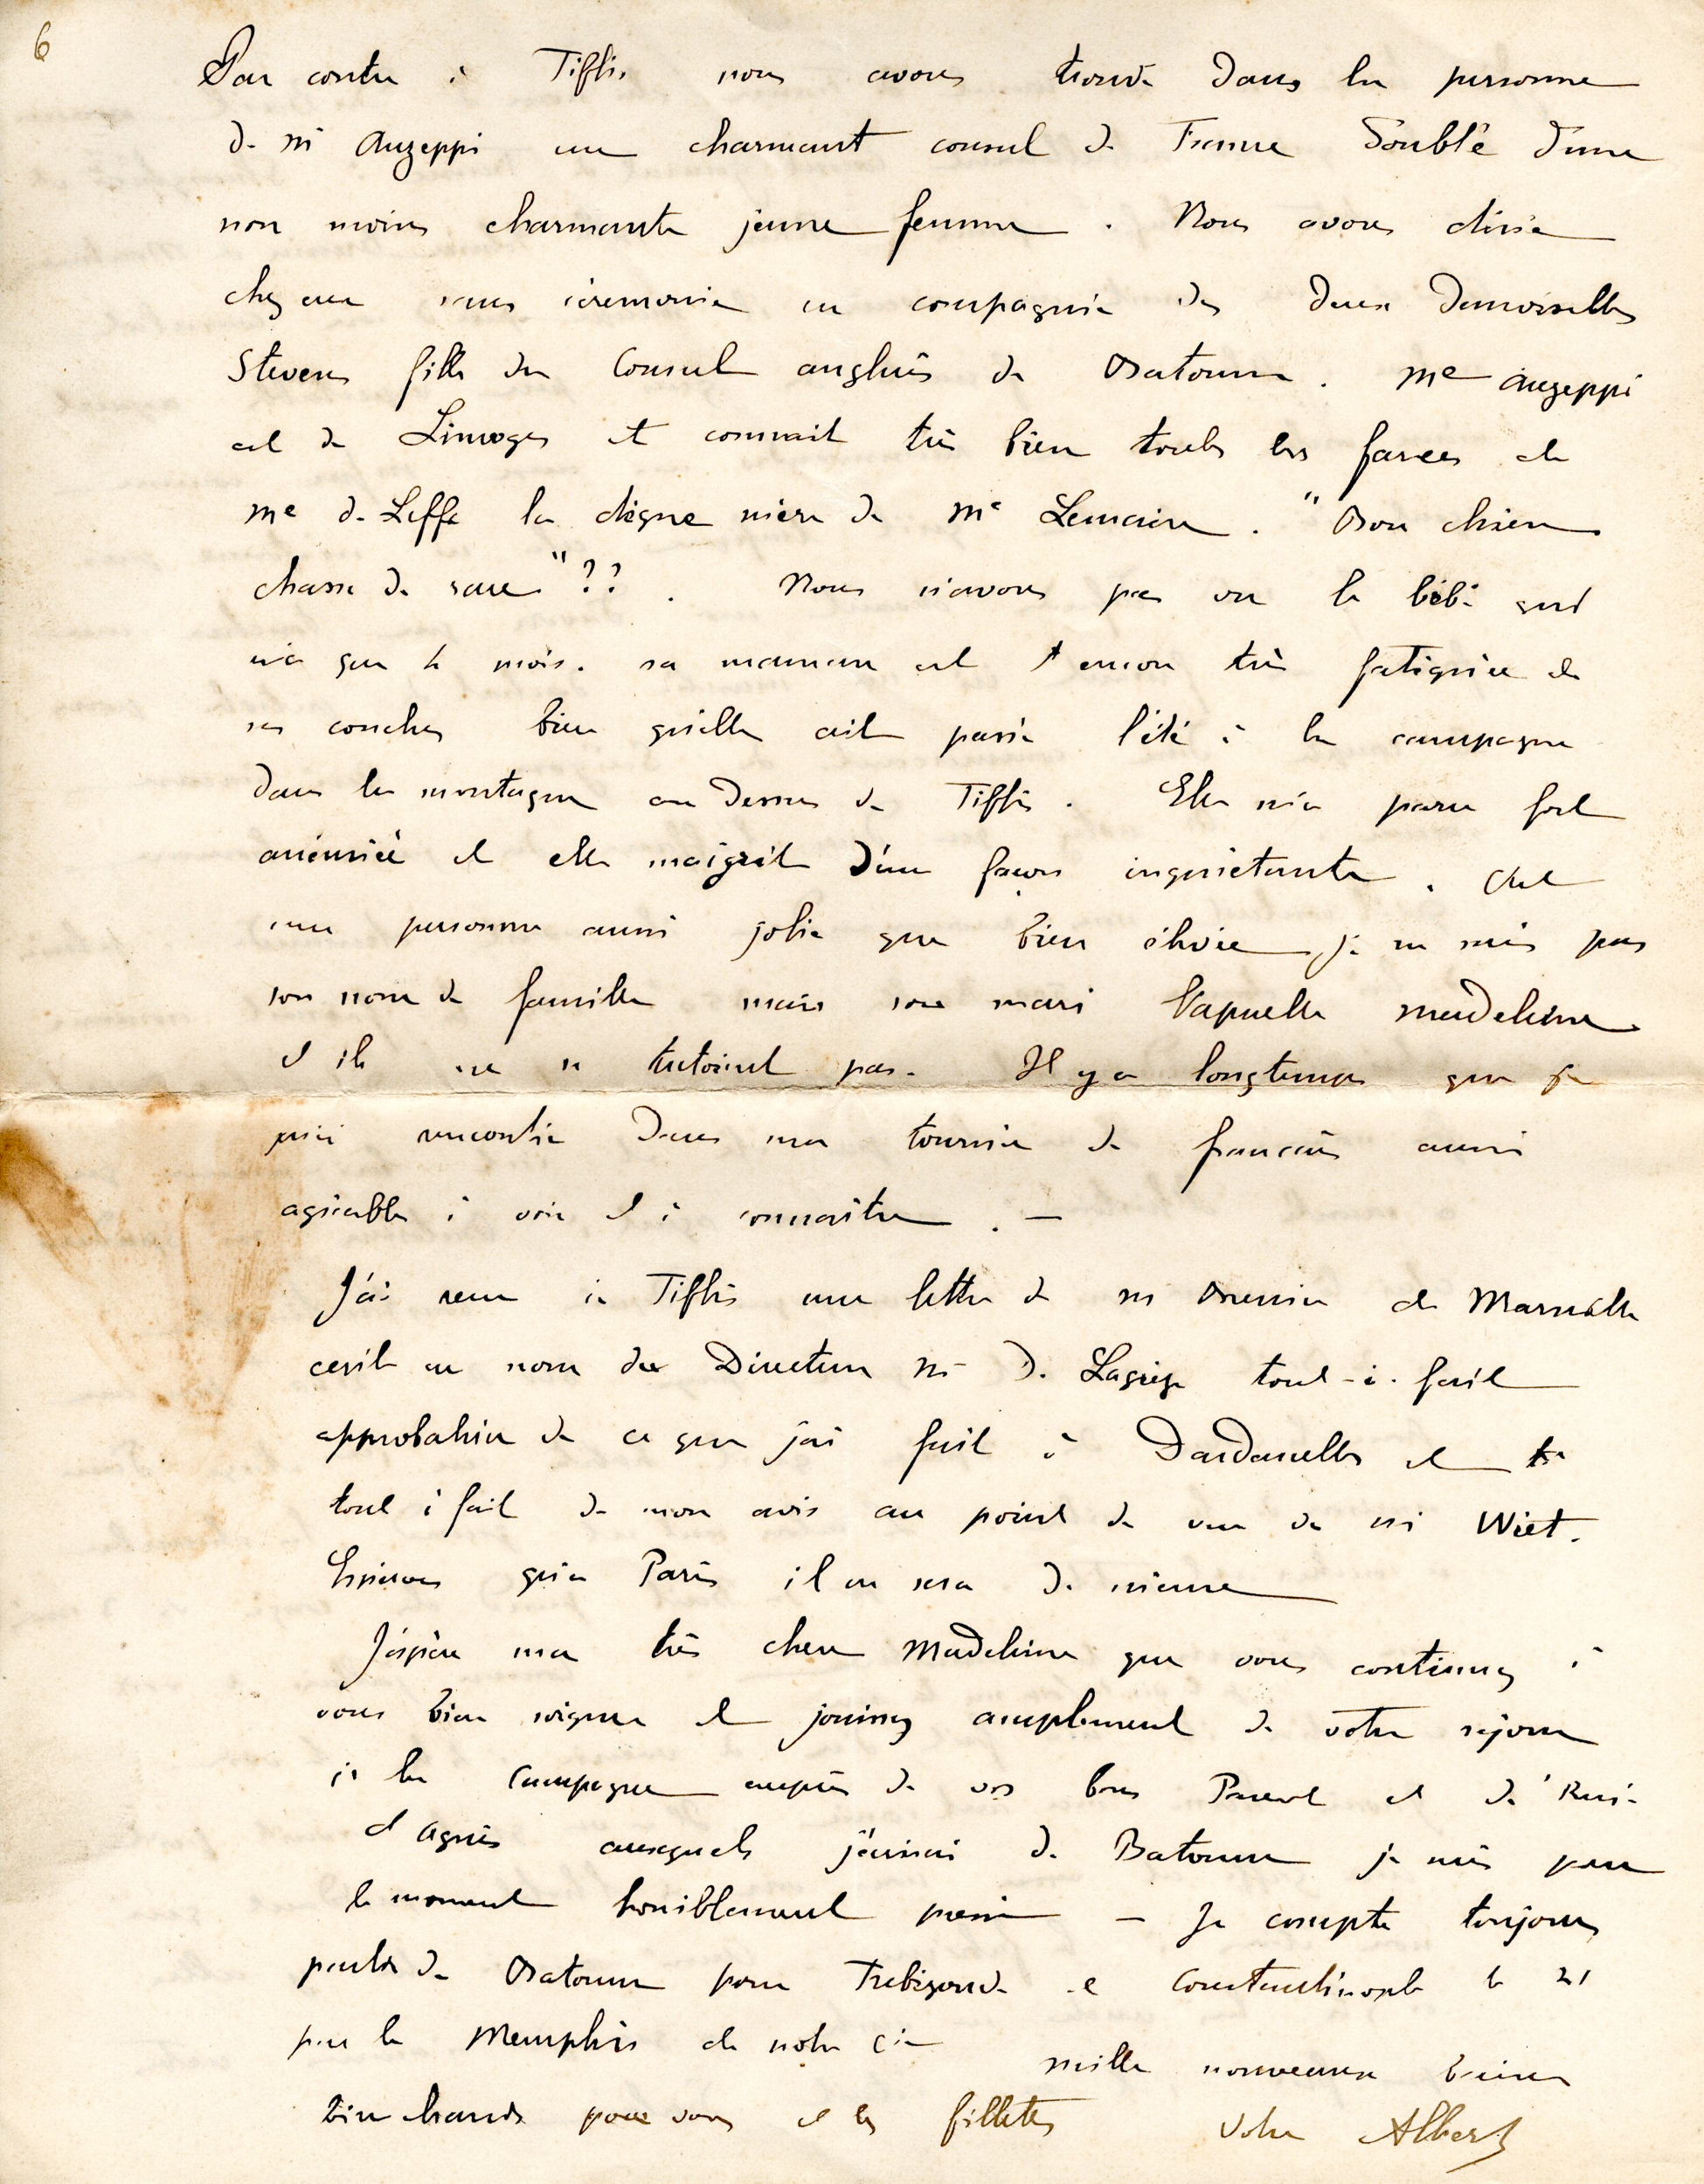 6
Par contre à Tiflis nous avons trouvé dans la personne
de Mr Auzeppi un charmant consul de France doublé d'une
non moins charmante jeune femme. Nous avons dîné
chez eux sans cérémonie en compagnie des deux demoiselles
Stevens filles du Consul anglais de Batoum. Me Auzeppi
est de Limoges et connait très bien toutes les farces de
Me de Leffe la digne mère de Me Lemaire. "Bon chien
chasse de race"??. Nous n'avons pas vu le bébé qui
n'a que 4 mois. sa maman est encore très fatiguée de
ses couches bien qu'elle ait passé l'été à la campagne
dans la montagne au dessus de Tiflis. Elle m'a paru fort
anémiée et elle maigrit d'une façon inquiétante. C'est
une personne aussi jolie que bien élevée je ne sais pas
son nom de famille mais son mari l'appelle Madeleine
et ils ne se tutoient pas. Il y a longtemps que je
n'ai rencontré dans ma tournée de français aussi
agréables à voir et à connaitre. —
J'ai reçu à Tiflis une lettre de Mr de Marseille
écrit au nom du Directeur Mr de tout-à-fait
approbative de ce que j'ai fait à Dardanelles et
tout à fait de mon avis au point de vue de Mr Wiet.
Espérons qu'à Paris il en sera de même
J'espère ma très chère Madeleine que vous continuez à
vous bien soigner et jouissez amplement de votre séjour
à la campagne auprès de vos bons Parents et de René
et Agnès auxquels j'écrirai de Batoum je suis pour
le moment horriblement pressé — Je compte toujours
partir de Batoum pour Trébizonde et Constantinople le 21
par le Memphis de notre Cie
mille nouveaux baisers
bien chauds pour vous et les fillettes Votre Albert